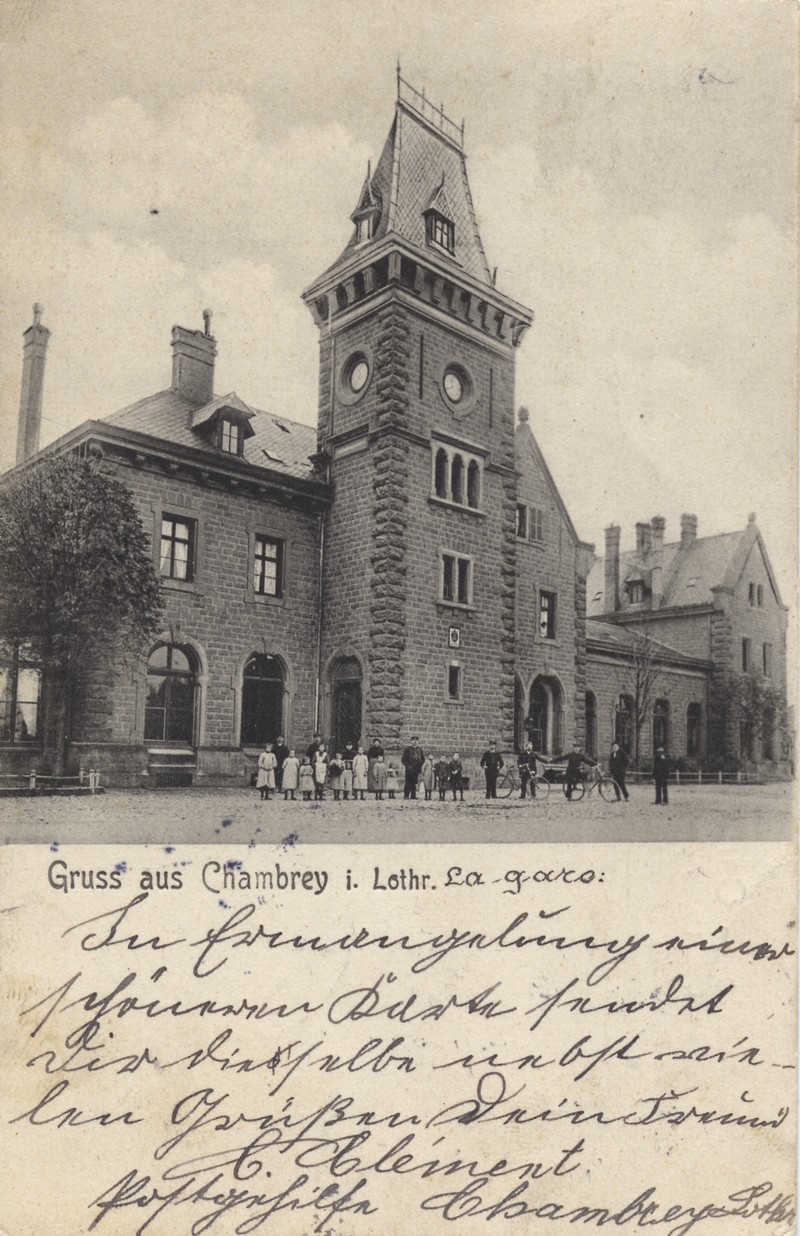 Gruss aus Chambrey i. Lothr. La gare:
In Ermangelung einer
schöneren Karte sendet
Dir dieselbe nebst vie-
len Grüßen Dein Freund
C. Clément
Postgehilfe Chambrey Lothr